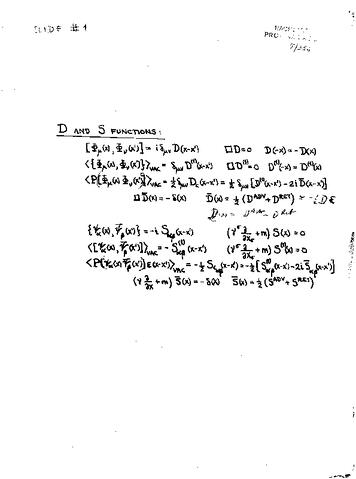 SLIDE #1
D AND S FUNCTIONS:
[Φμ(x), Φν(x')] = i δμν D(x-x')   □D=0   D(-x) = -D(x)
<{Φμ(x), Φν(x')}>VAC = δμν D⁽¹⁾(x-x')   □D⁽¹⁾=0   D⁽¹⁾(-x) = D⁽¹⁾(x)
<P[Φμ(x), Φν(x')]>VAC = ½ δμν Dc(x-x') = ½ δμν [D⁽¹⁾(x-x') - 2i D̄(x-x')]
□D̄(x) = -δ(x)   D̄(x) = ½ (Dᴬᴰⱽ + Dᴿᴱᵀ)
{ψα(x), ψ̄β(x')} = -i Sαβ(x-x')   (γ ∂/∂x + m) S(x) = 0
<[ψα(x), ψ̄β(x')]>VAC = - S⁽¹⁾αβ(x-x')   (γ ∂/∂x + m) S⁽¹⁾(x) = 0
<P(ψα(x) ψ̄β(x')) ε(x-x')>VAC = -½ Scαβ(x-x') = -½ [S⁽¹⁾αβ(x-x') - 2i S̄αβ(x-x')]
(γ ∂/∂x + m) S̄(x) = -δ(x)   S̄(x) = ½ (Sᴬᴰⱽ + Sᴿᴱᵀ)